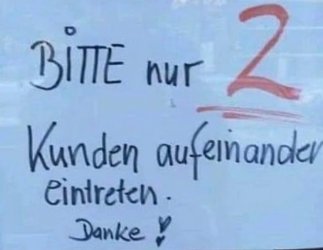 BITTE nur 2
Kunden aufeinander
eintreten.
Danke !